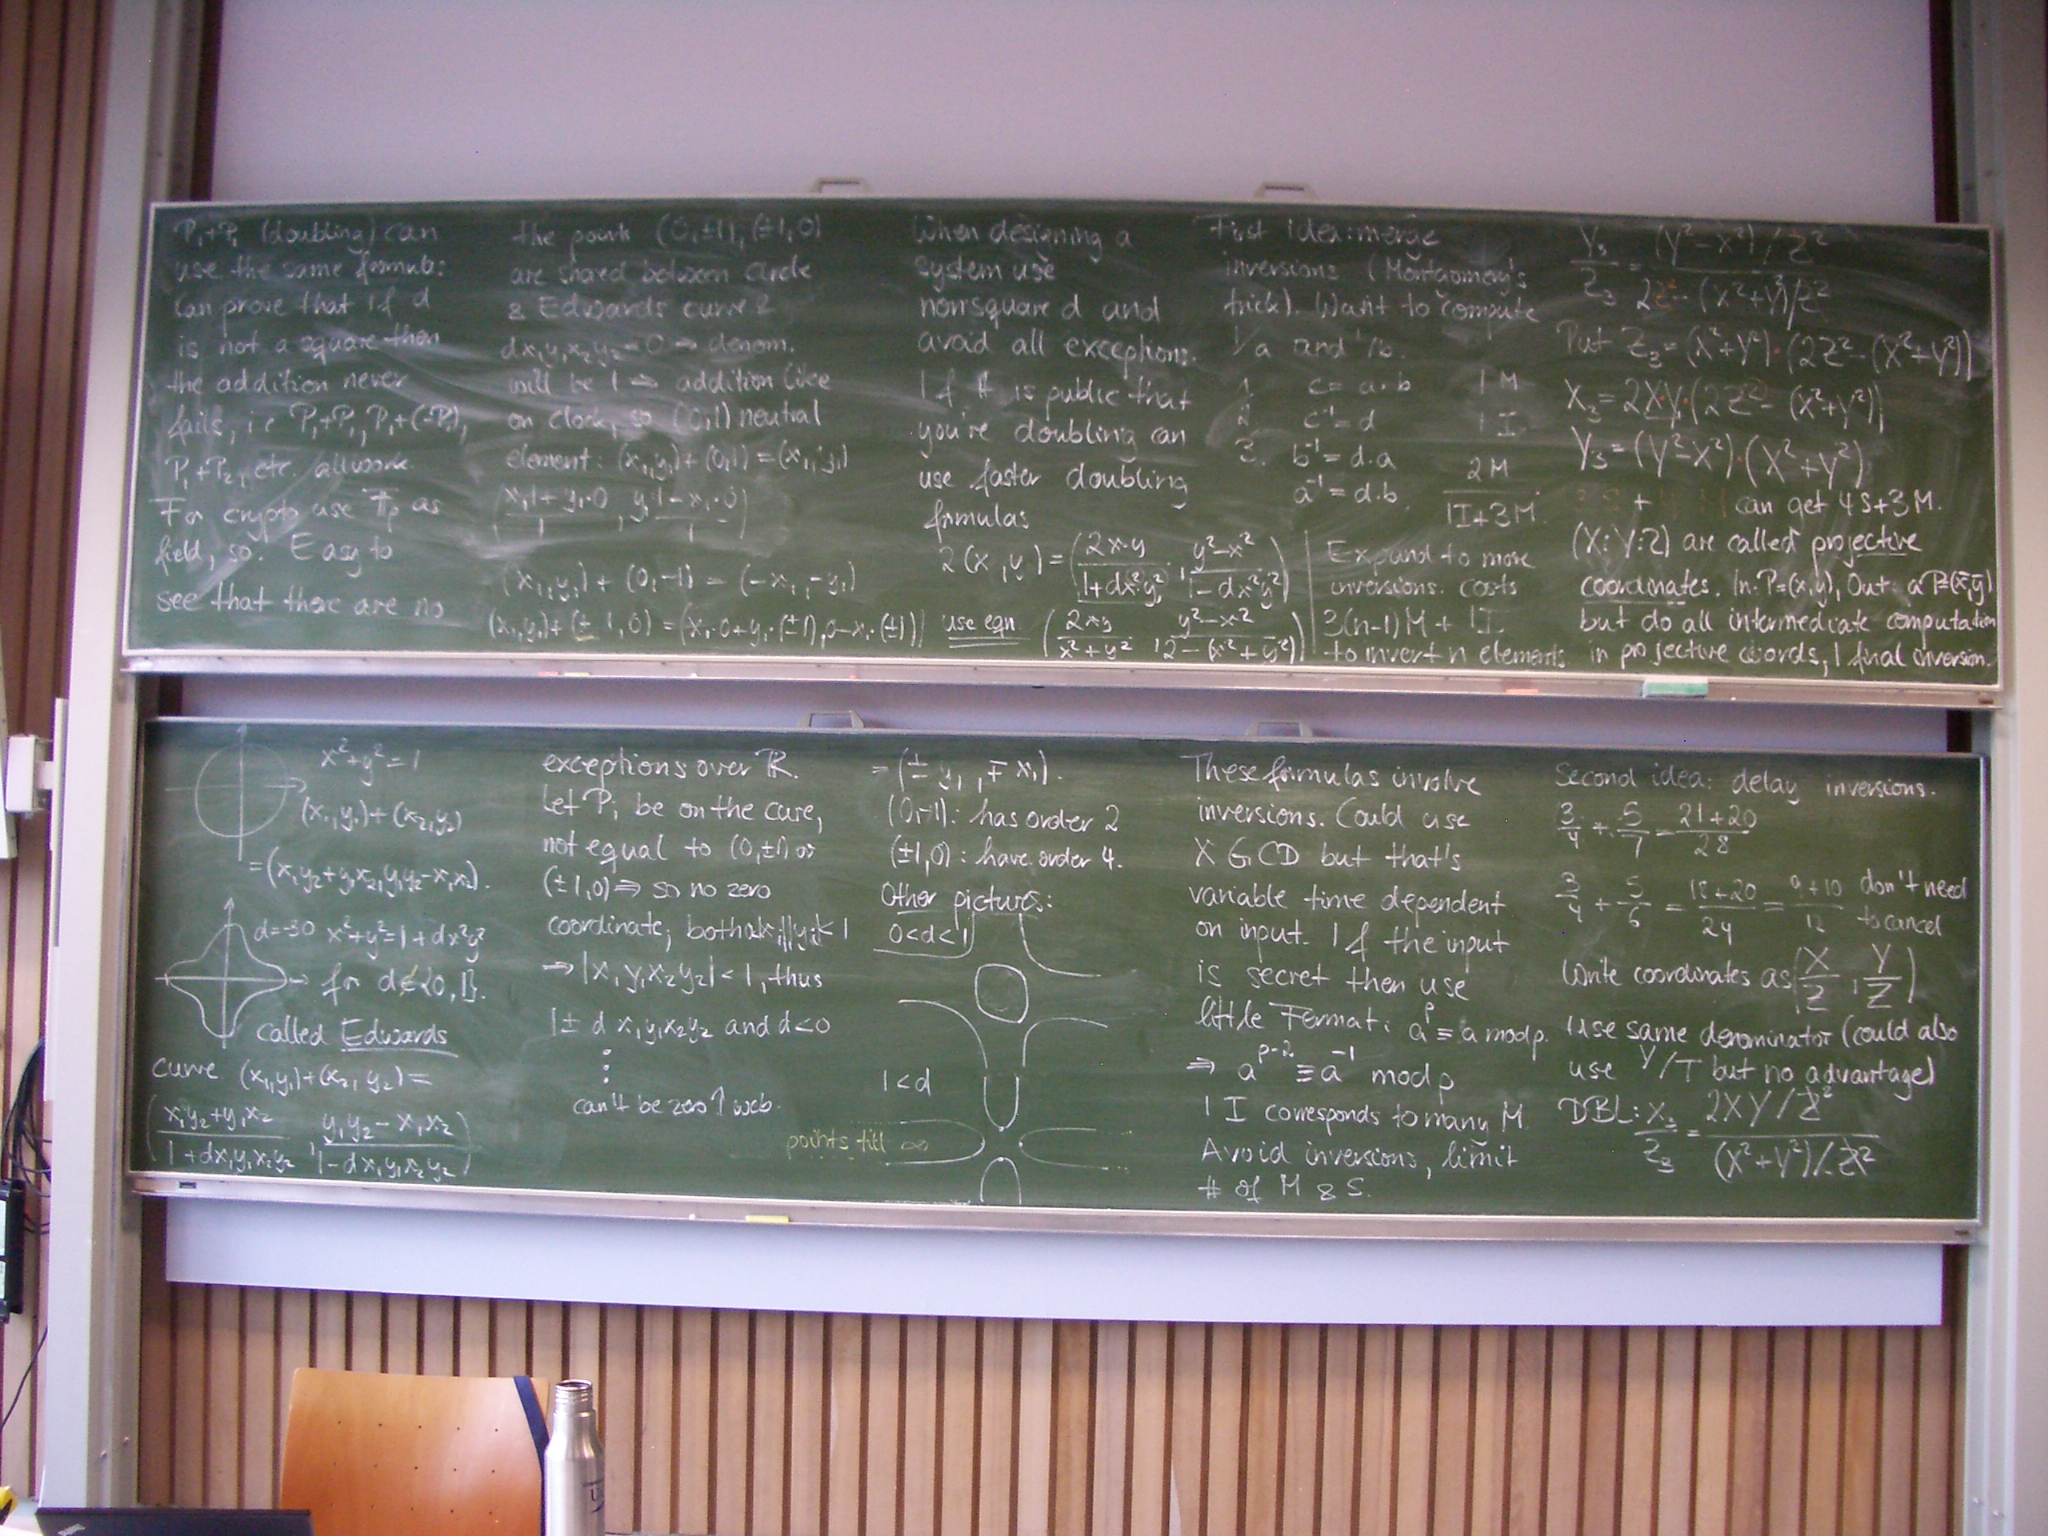 P₁+P₁ (doubling) can
use the same formula:
Can prove that if d
is not a square then
the addition never
fails, i.e. P₁+P₁, P₁+(-P₁),
P₁+P₂, etc. all work.
For crypto use 𝔽p as
field, so. Easy to
see that there are no
the points (0,±1), (±1,0)
are shared between circle
& Edwards curve &
dx₁y₁x₂y₂=0 ⇒ denom.
will be 1 ⇒ addition like
on clock, so (0,1) neutral
element: (x₁,y₁)+(0,1)=(x₁,y₁)
(x₁·1+y₁·0 / 1, y₁·1-x₁·0 / 1)
(x₁,y₁) + (0,-1) = (-x₁,-y₁)
(x₁,y₁)+(±1,0) = (x₁·0+y₁·(±1), 0-x₁·(±1))
When designing a
system use
nonsquare d and
avoid all exceptions.
If it is public that
you're doubling can
use faster doubling
formulas
2(x,y) = (2xy / 1+dx²y², y²-x² / 1-dx²y²)
use eqn (2xy / x²+y², y²-x² / 2-(x²+y²))
First idea: merge
inversions (Montgomery's
trick). Want to compute
1/a and 1/b.
1. c = a·b 1M
2. c⁻¹=d 1I
3. b⁻¹=d·a
a⁻¹=d·b. 2M
1I+3M.
Expand to more
inversions. costs
3(n-1)M + 1I
to invert n elements
Y₃/Z₃ = (Y²-X²)/Z² / 2Z²-(X²+Y²)/Z²
Put Z₃=(X²+Y²)·(2Z²-(X²+Y²))
X₃=2XY·(2Z²-(X²+Y²))
Y₃=(Y²-X²)·(X²+Y²)
+ can get 4S+3M.
(X:Y:Z) are called projective
coordinates. In: P=(x,y), Out: aP=(x̄,ȳ)
but do all intermediate computation
in projective coords, 1 final inversion.
x²+y²=1
(x₁,y₁)+(x₂,y₂)
=(x₁y₂+y₁x₂,y₁y₂-x₁x₂).
d=-30 x²+y²=1+dx²y²
for d∉{0,1}.
called Edwards
curve (x₁,y₁)+(x₂,y₂)=
(x₁y₂+y₁x₂ / 1+dx₁y₁x₂y₂, y₁y₂-x₁x₂ / 1-dx₁y₁x₂y₂)
exceptions over ℝ.
Let Pᵢ be on the cure,
not equal to (0,±1) or
(±1,0) ⇒ so no zero
coordinate, both |xᵢ|,|yᵢ|<1
⇒ |x₁y₁x₂y₂|<1, thus
1± d x₁y₁x₂y₂ and d<0
⋮
can't be zero ↑ web.
=(± y₁, ∓ x₁).
(0,-1): has order 2
(±1,0): have order 4.
Other pictures:
0<d<1
1<d
points till ∞
These formulas involve
inversions. Could use
XGCD but that's
variable time dependent
on input. If the input
is secret then use
little Fermat: aᵖ≡a mod p.
⇒ aᵖ⁻² ≡ a⁻¹ mod p
1 I corresponds to many M.
Avoid inversions, limit
# of M & S.
Second idea: delay inversions.
3/4 + 5/7 = 21+20 / 28
3/4 + 5/6 = 18+20 / 24 = 9+10 / 12 don't need
to cancel
Write coordinates as (X/Z, Y/Z)
Use same denominator (could also
use Y/T but no advantage)
DBL: X₃/Z₃ = 2XY/Z² / (X²+Y²)/Z²